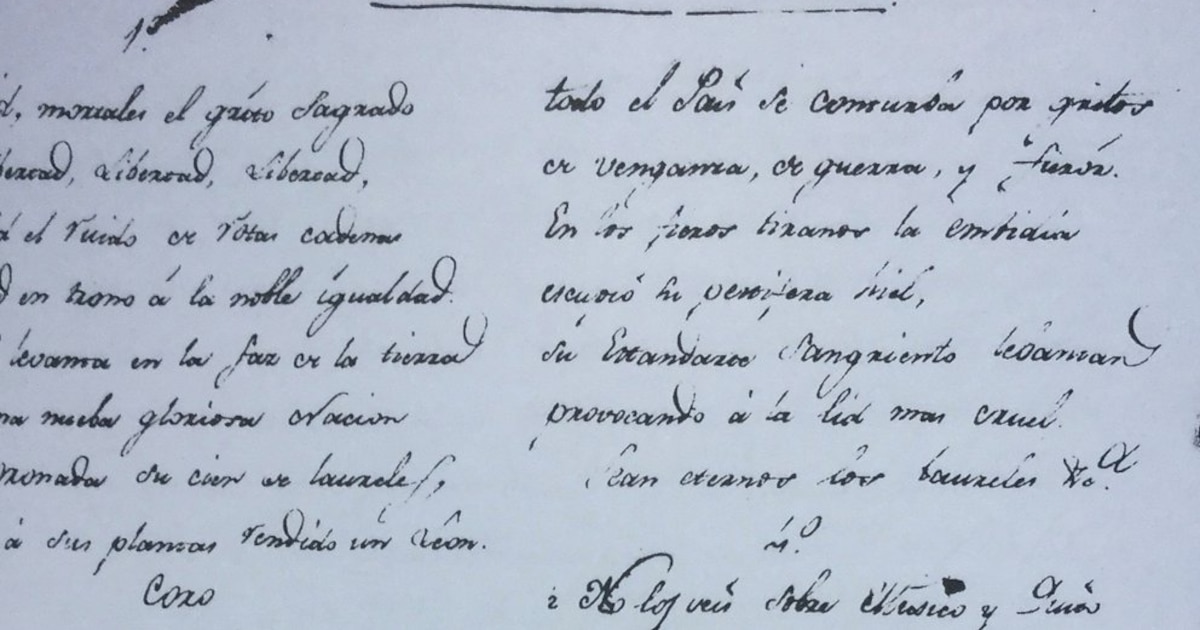 1º
d, mortales el gríto Sagrado
bertad, Libertad, Libertad,
d el ruido de rotas cadenas
d en trono á la noble igualdad.
levanta en la faz de la tierra
na nueba gloriosa Nacion
ronada su cien de laureles,
á sus plantas rendido un León.
Coro
todo el País se conturba por gritos
de venganza, de guerra, y furór.
En los fieros tiranos la embidia
escupió su pestifera hiel,
su Estandarte sangriento lebantan
provocando á la lid mas cruel.
Sean eternos los laureles &c.ª
4º.
¿No los veis sobre Mexico y Quito